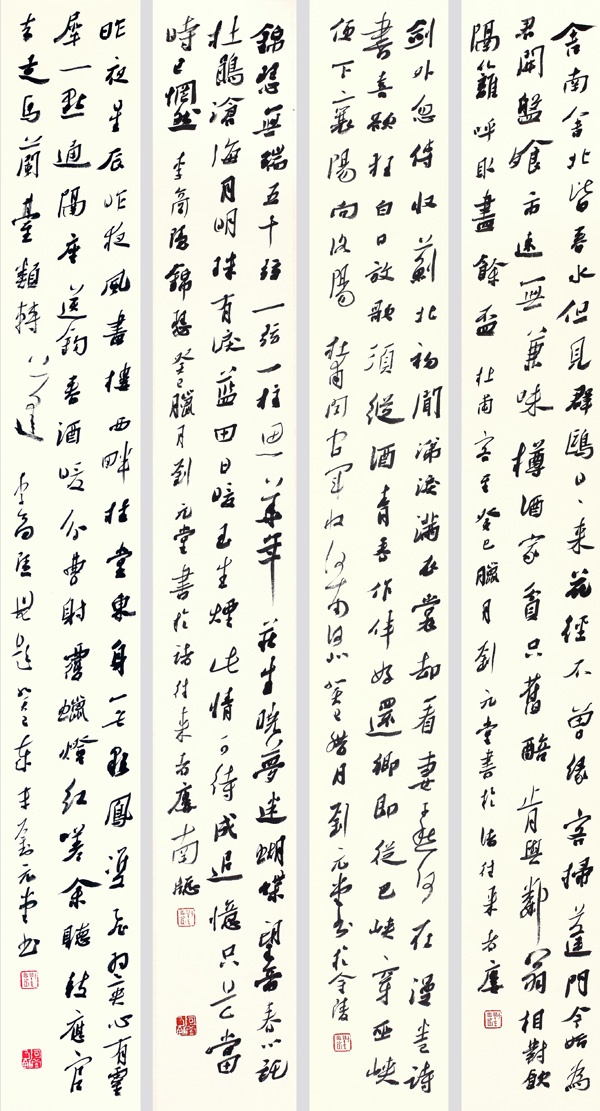 舍南舍北皆春水但見群鷗日〻來花徑不曾緣客掃蓬門今始為
君開盤飧市遠無兼味樽酒家貧只舊醅肯與鄰翁相對飲
隔籬呼取盡餘盃 杜甫 客至 癸巳臘月劉元堂書於往來者廬
劍外忽傳收薊北初聞涕淚滿衣裳却看妻子愁何在漫卷詩
書喜欲狂白日放歌須縱酒青春作伴好還鄉即從巴峽穿巫峽
便下襄陽向洛陽 杜甫聞官軍收河南河北 癸巳臘月劉元堂書於金陵
錦瑟無端五十弦一弦一柱思華年莊生曉夢迷蝴蝶望帝春心託
杜鵑滄海月明珠有淚藍田日暖玉生煙此情可待成追憶只是當
時已惘然 李商隱錦瑟 癸巳臘月劉元堂書於往來者廬南牖
昨夜星辰昨夜風畫樓西畔桂堂東身無彩鳳雙飛翼心有靈
犀一點通隔座送鈎春酒暖分曹射覆蠟燈紅嗟余聽鼓應官
去走馬蘭臺類轉蓬 李商隱無題 癸巳年末劉元堂書